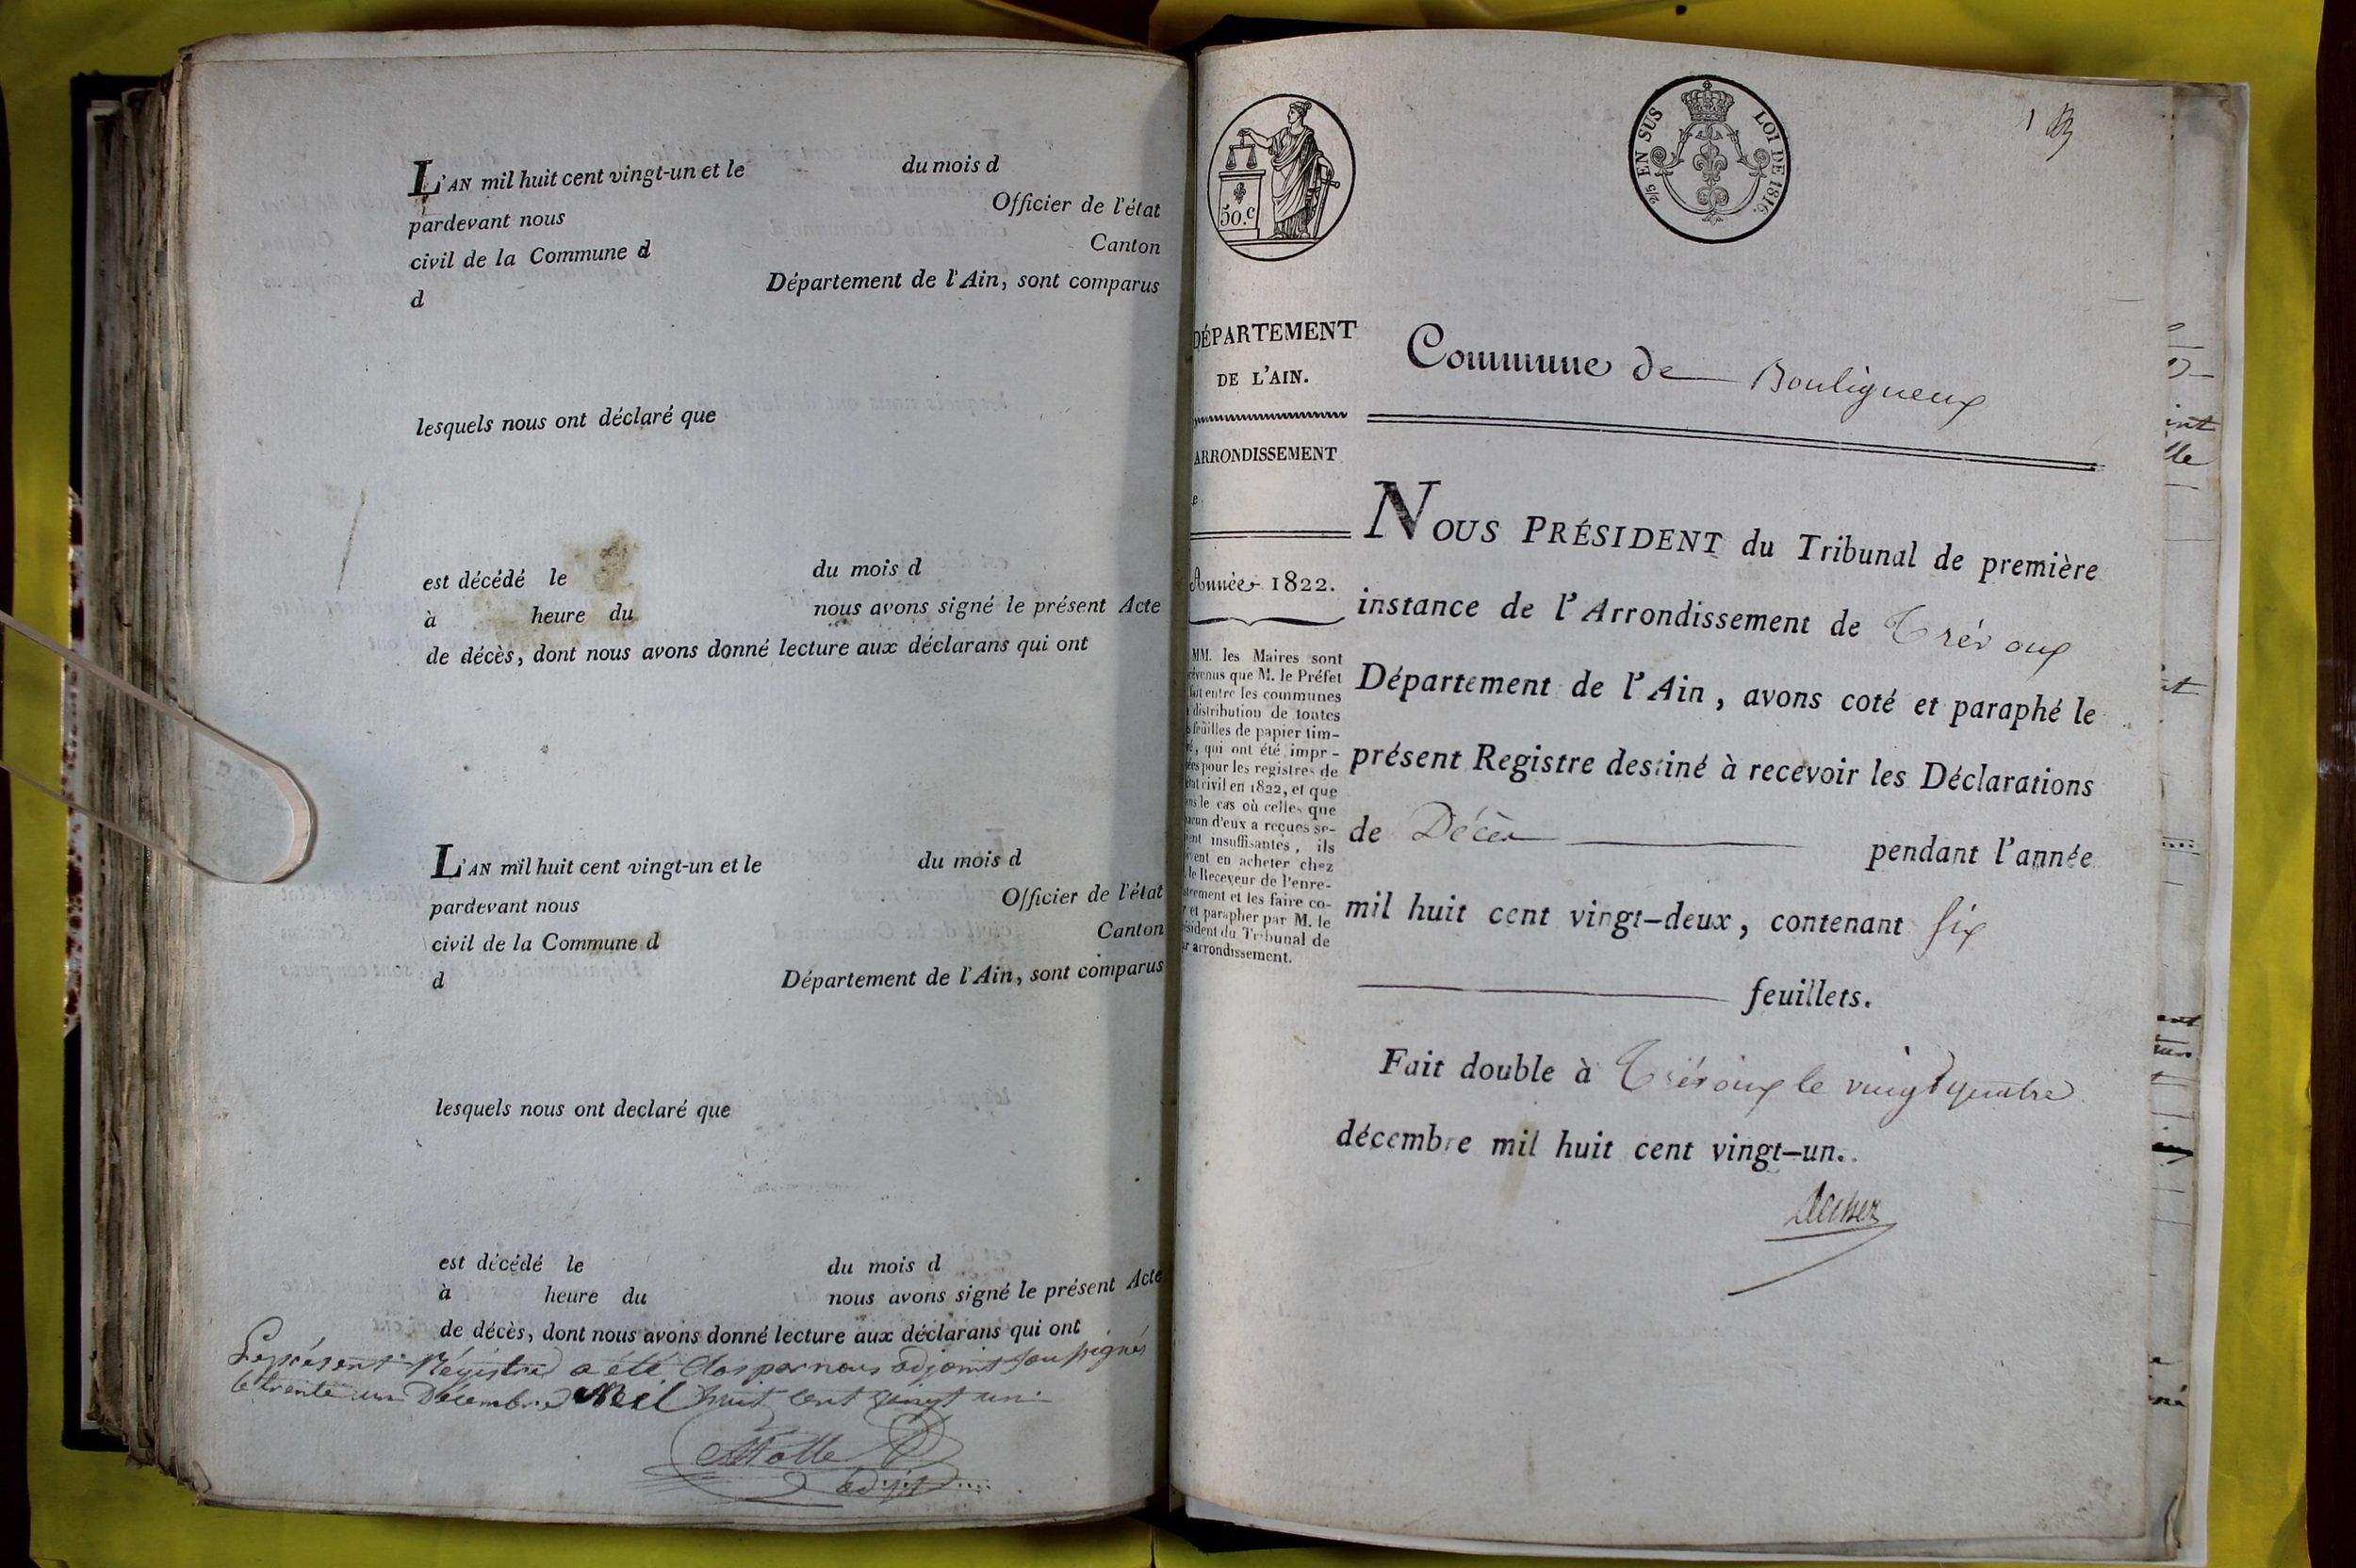 L'AN mil huit cent vingt-un et le du mois d
pardevant nous Officier de l'état
civil de la Commune d Canton
d Département de l'Ain, sont comparus
lesquels nous ont déclaré que
est décédé le du mois d
à heure du nous avons signé le présent Acte
de décès, dont nous avons donné lecture aux déclarans qui ont
L'AN mil huit cent vingt-un et le du mois d
pardevant nous Officier de l'état
civil de la Commune d Canton
d Département de l'Ain, sont comparus
lesquels nous ont declaré que
est décédé le du mois d
à heure du nous avons signé le présent Acte
de décès, dont nous avons donné lecture aux déclarans qui ont
Le présent Régistre a été Clos par nous adjoint soussignés
le trente un Décembre Mil huit cent vingt un
adjt
50.c
2/5 EN SUS LOI DE 1816.
1
DÉPARTEMENT
DE L'AIN.
ARRONDISSEMENT
Année 1822.
MM. les Maires sont
évenus que M. le Préfet
fait entre les communes
distribution de toutes
feuilles de papier tim-
é, qui ont été impr-
ées pour les registres de
état civil en 1822, et que
ns le cas où celles que
acun d'eux a reçues se-
ient insuffisantes, ils
vent en acheter chez
le Receveur de l'enre-
trement et les faire co-
r et parapher par M. le
ésident du Tribunal de
ur arrondissement.
Commune de Bouligneux
NOUS PRÉSIDENT du Tribunal de première
instance de l'Arrondissement de Trévoux
Département de l'Ain, avons coté et paraphé le
présent Registre destiné à recevoir les Déclarations
de Décès pendant l'année
mil huit cent vingt-deux, contenant six
feuillets.
Fait double à Trévoux le vingt quatre
décembre mil huit cent vingt-un.